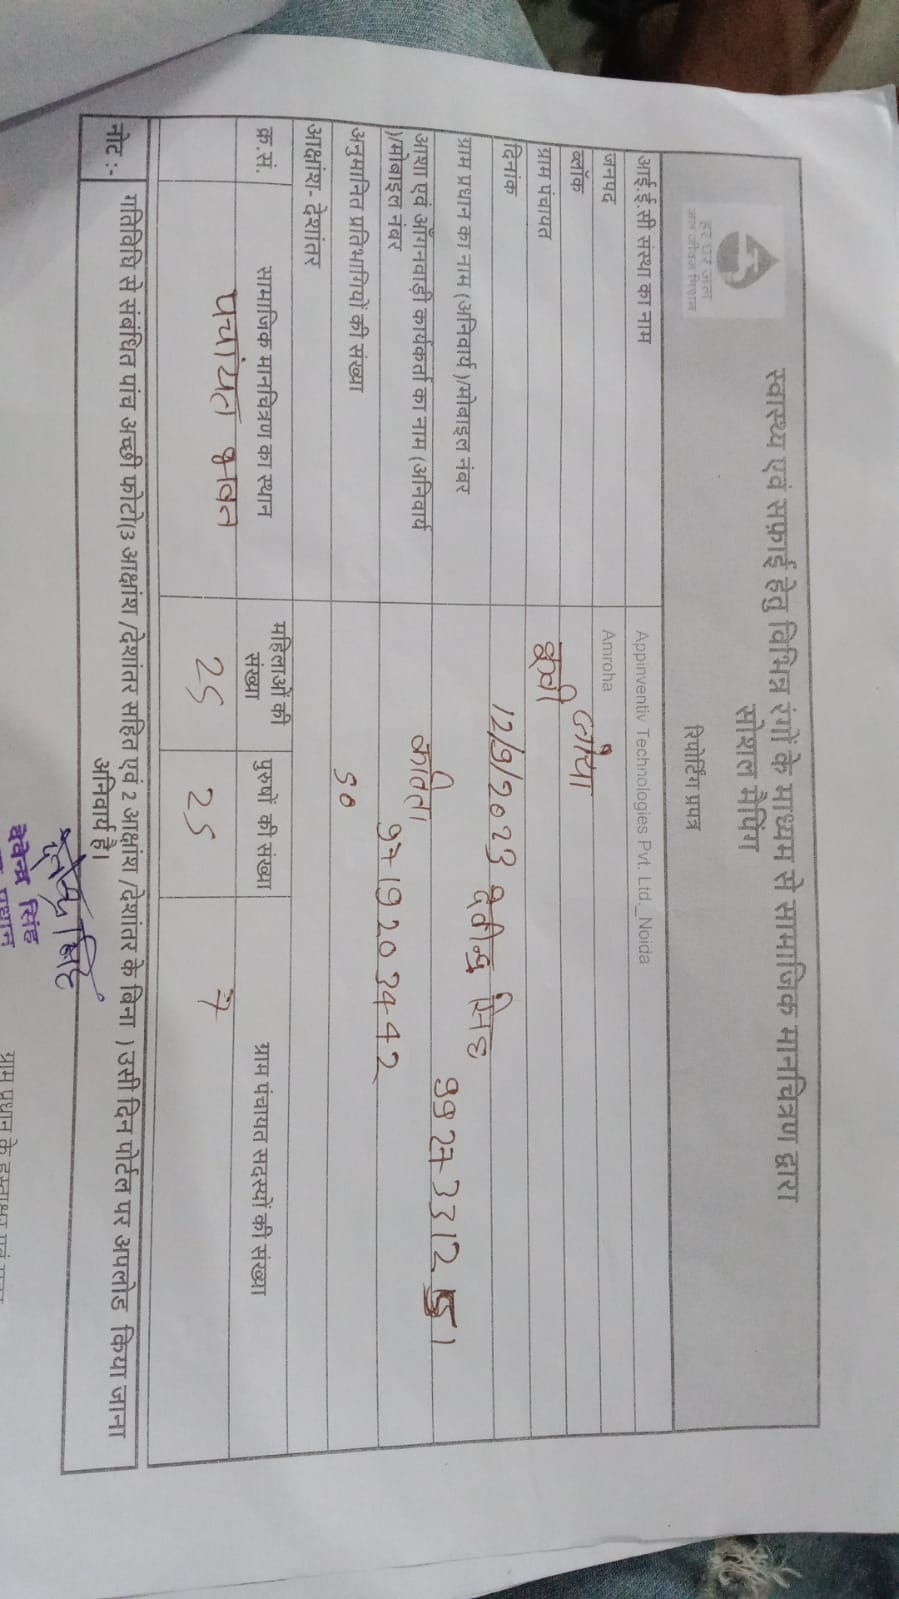 हर घर जल
जल जीवन मिशन
स्वास्थ्य एवं सफ़ाई हेतु विभिन्न रंगों के माध्यम से सामाजिक मानचित्रण द्वारा
सोशल मैपिंग
रिपोर्टिंग प्रपत्र
आई.ई.सी संस्था का नाम Appinventiv Technologies Pvt. Ltd._Noida
जनपद Amroha
ब्लॉक जोया
ग्राम पंचायत
दिनांक 12/9/2023
ग्राम प्रधान का नाम (अनिवार्य )/मोबाइल नंबर सिंह
आशा एवं आँगनवाड़ी कार्यकर्ता का नाम (अनिवार्य कविता
)/मोबाइल नंबर 9719203442
अनुमानित प्रतिभागियों की संख्या 50
आक्षांश- देशांतर
क्र.सं. सामाजिक मानचित्रण का स्थान महिलाओं की संख्या पुरुषों की संख्या ग्राम पंचायत सदस्यों की संख्या
पचांयत भवन 25 25 7
नोट :- गतिविधि से संबंधित पांच अच्छी फोटो(3 आक्षांश /देशांतर सहित एवं 2 आक्षांश /देशांतर के बिना ) उसी दिन पोर्टल पर अपलोड किया जाना
अनिवार्य है।
सिंह
प्रधान